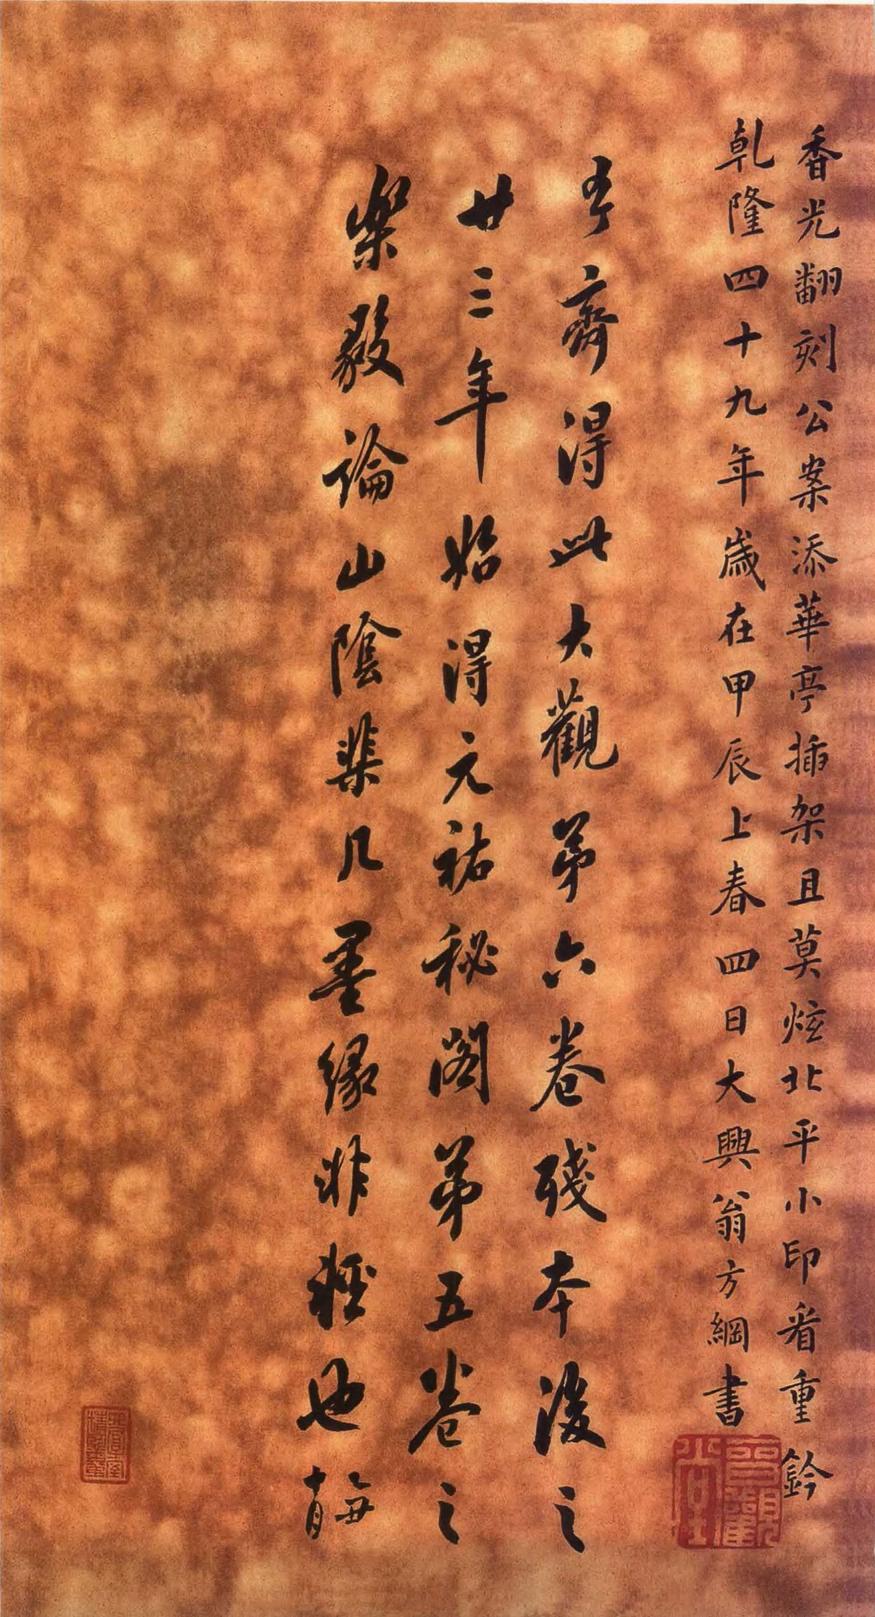 香光翻刻公案添華亭插架且莫炫北平小印看重鈐
乾隆四十九年歲在甲辰上春四日大興翁方綱書
齋得此大觀第六卷殘本後之
廿三年始得元祐秘閣第五卷之
樂毅論山陰棐几墨緣非輕也